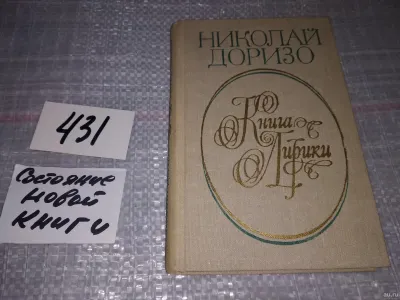 НИКОЛАЙ
ДОРИЗО
Книга
Лирики
431
Состояние
новой
книги